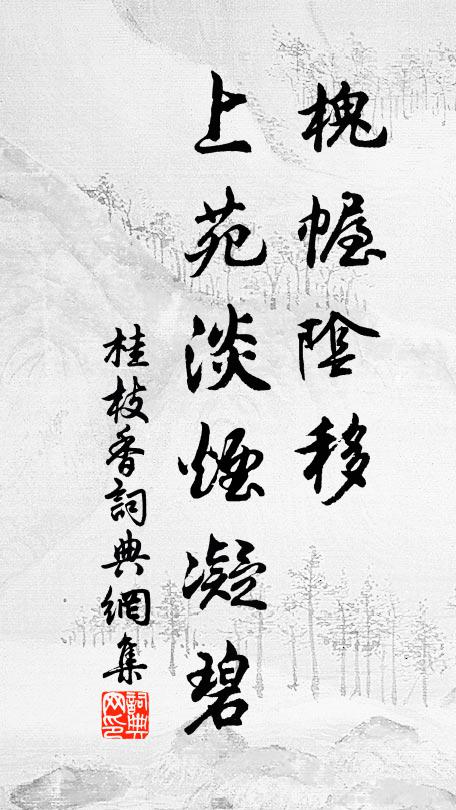 槐幄陰移
上苑淡煙凝碧
桂枝香詞典網集
詞典
网印